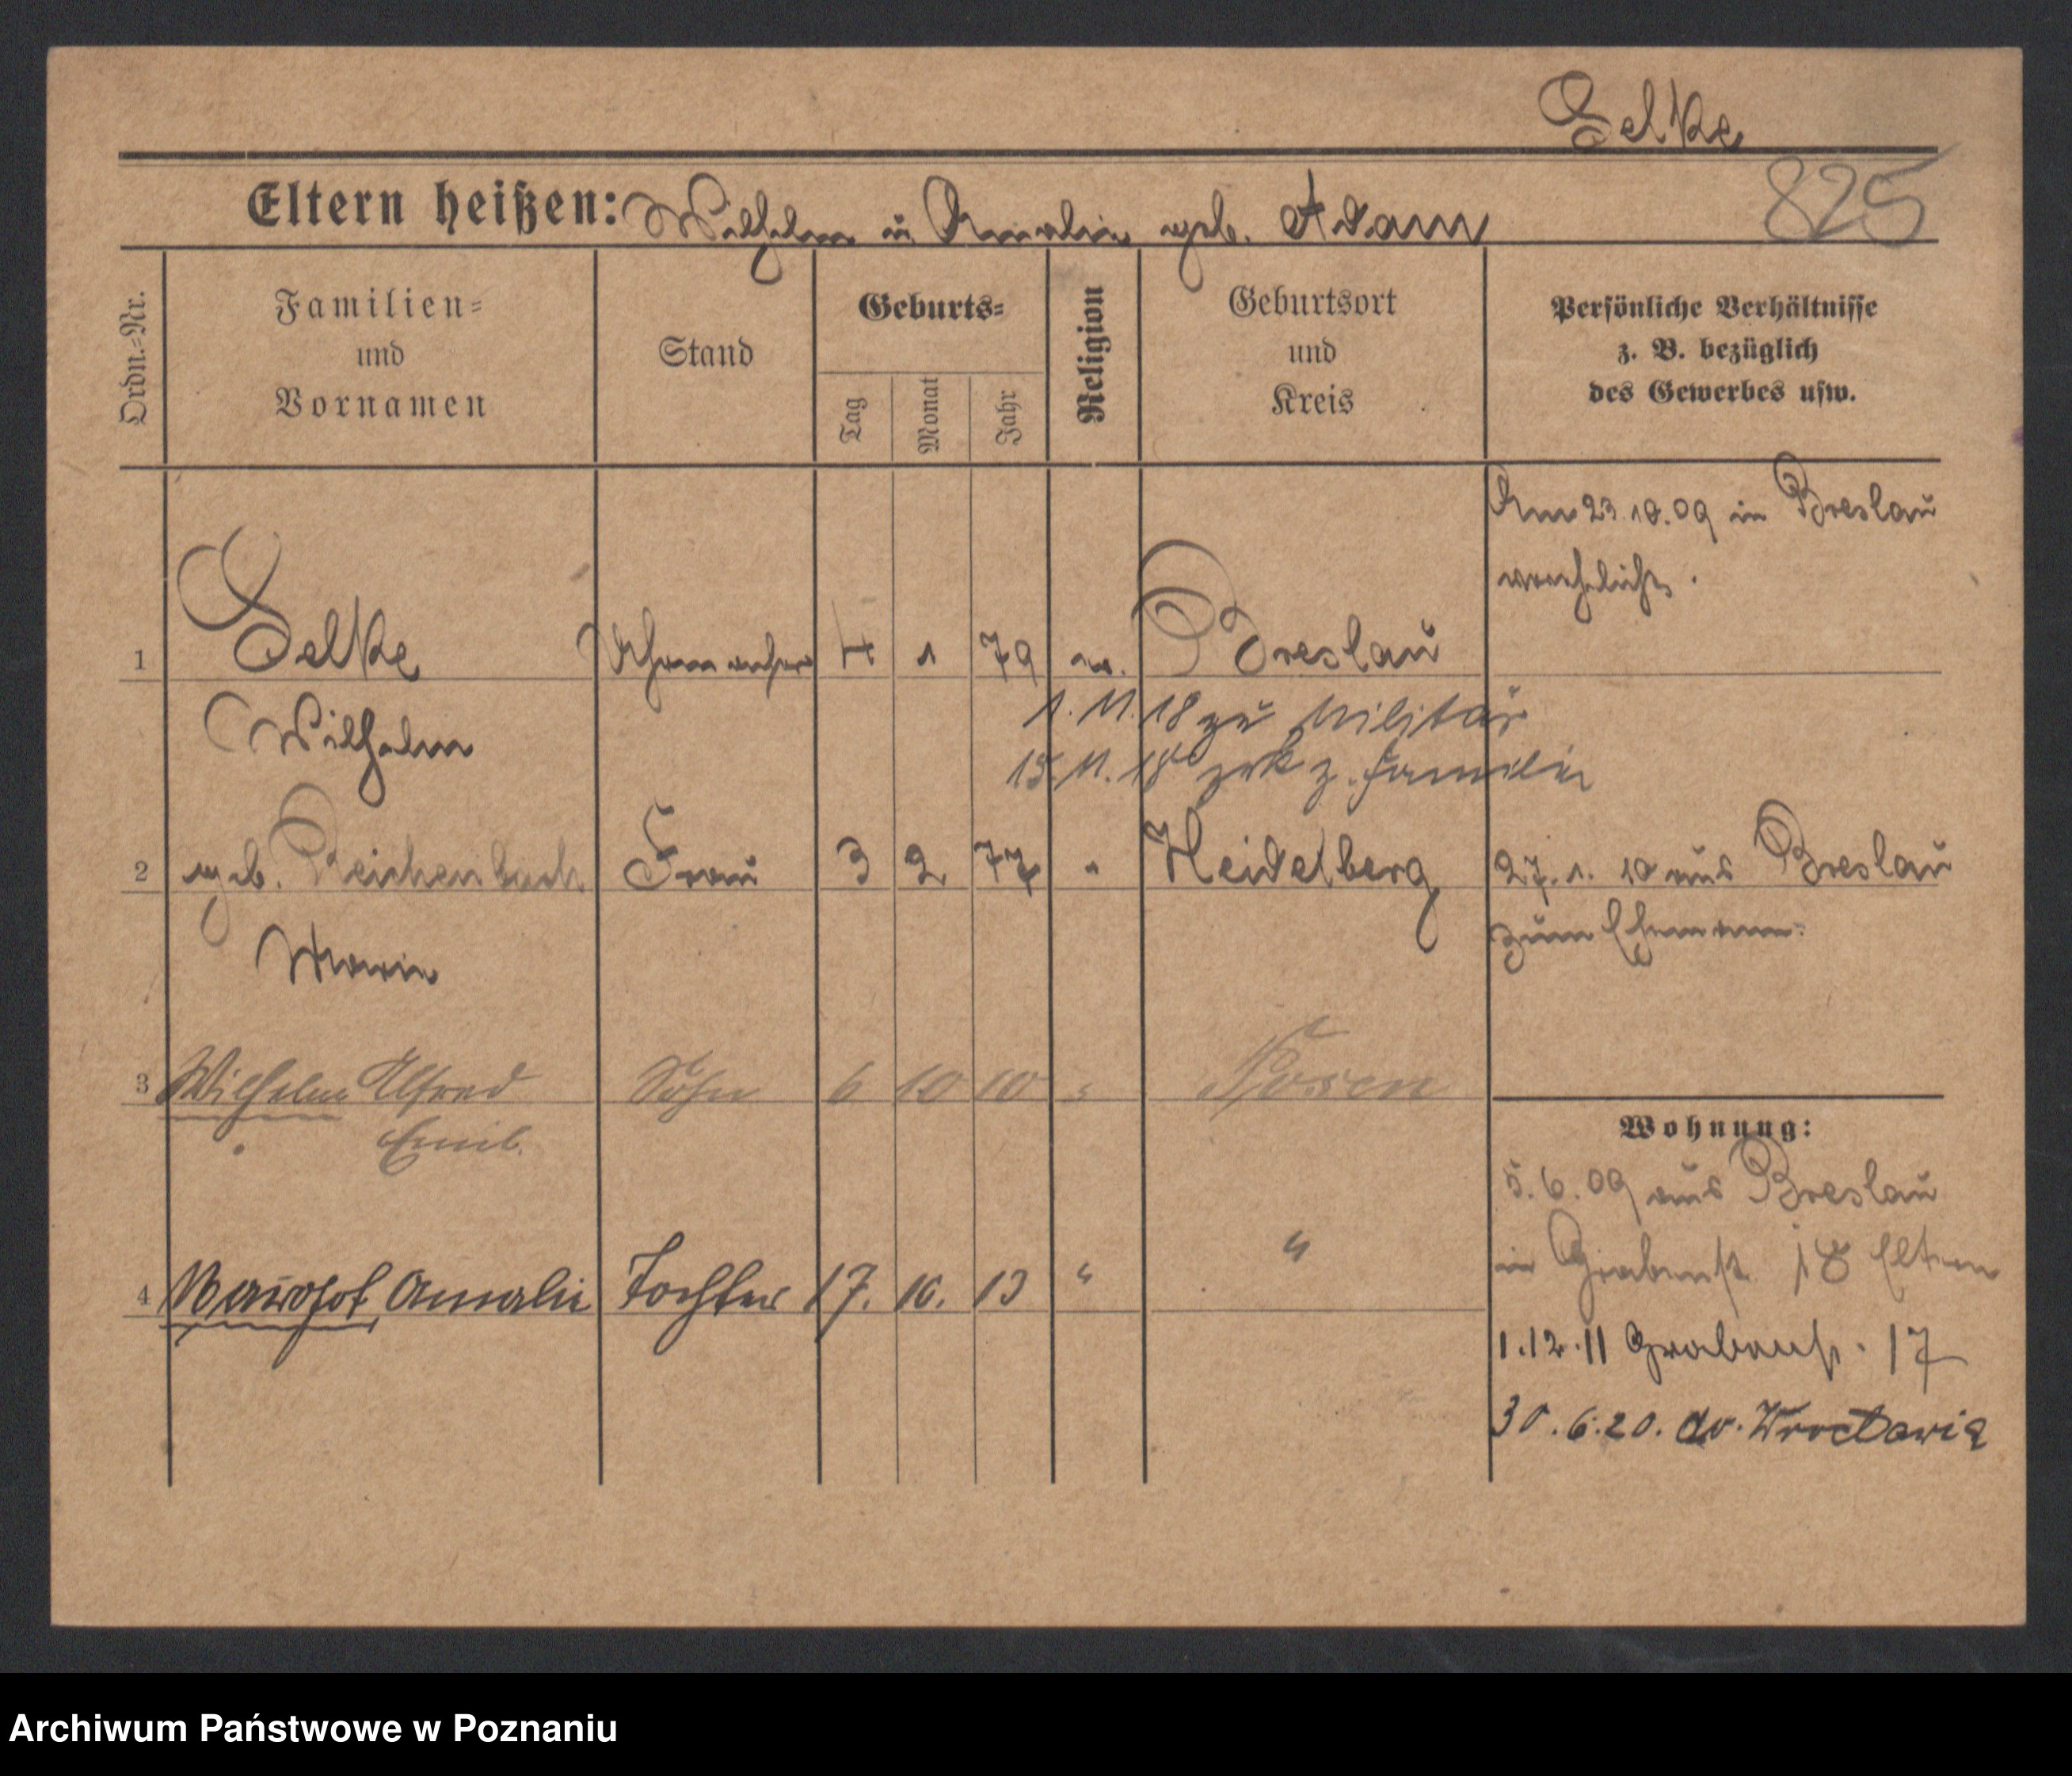 Selke
825
Eltern heißen: Wilhelm u Amalie geb. Adam
Ordn.-Nr.
Familien-
und
Vornamen
Stand
Geburts-
Tag
Monat
Jahr
Religion
Geburtsort
und
Kreis
Persönliche Verhältnisse
z. B. bezüglich
des Gewerbes usw.
Am 23.10.09 in Breslau
verehelicht.
1 Selke Uhrmacher 4 1 79 ev. Breslau
Wilhelm
1. 11. 18 zu Militär
15. 11. 18 zrk z. Familie
2 geb. Reichenbach Frau 3 2 77 " Heidelberg 27. 1. 10 aus Breslau
zum Ehemann.
Marie
3 Wilhelm Alfred Sohn 6 10 10 " Posen
Emil.
Wohnung:
5. 6. 09 aus Breslau
in Grabenst. 18 Eltern
4 Amalie Tochter 17. 10. 13 " "
1.12.11 Grabenst. 17
30. 6. 20. do. Wrocławia
Archiwum Państwowe w Poznaniu